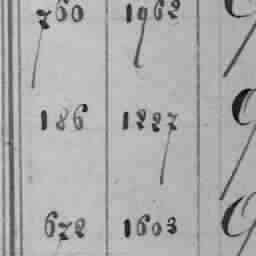 760 1962
186 1227
672 1603